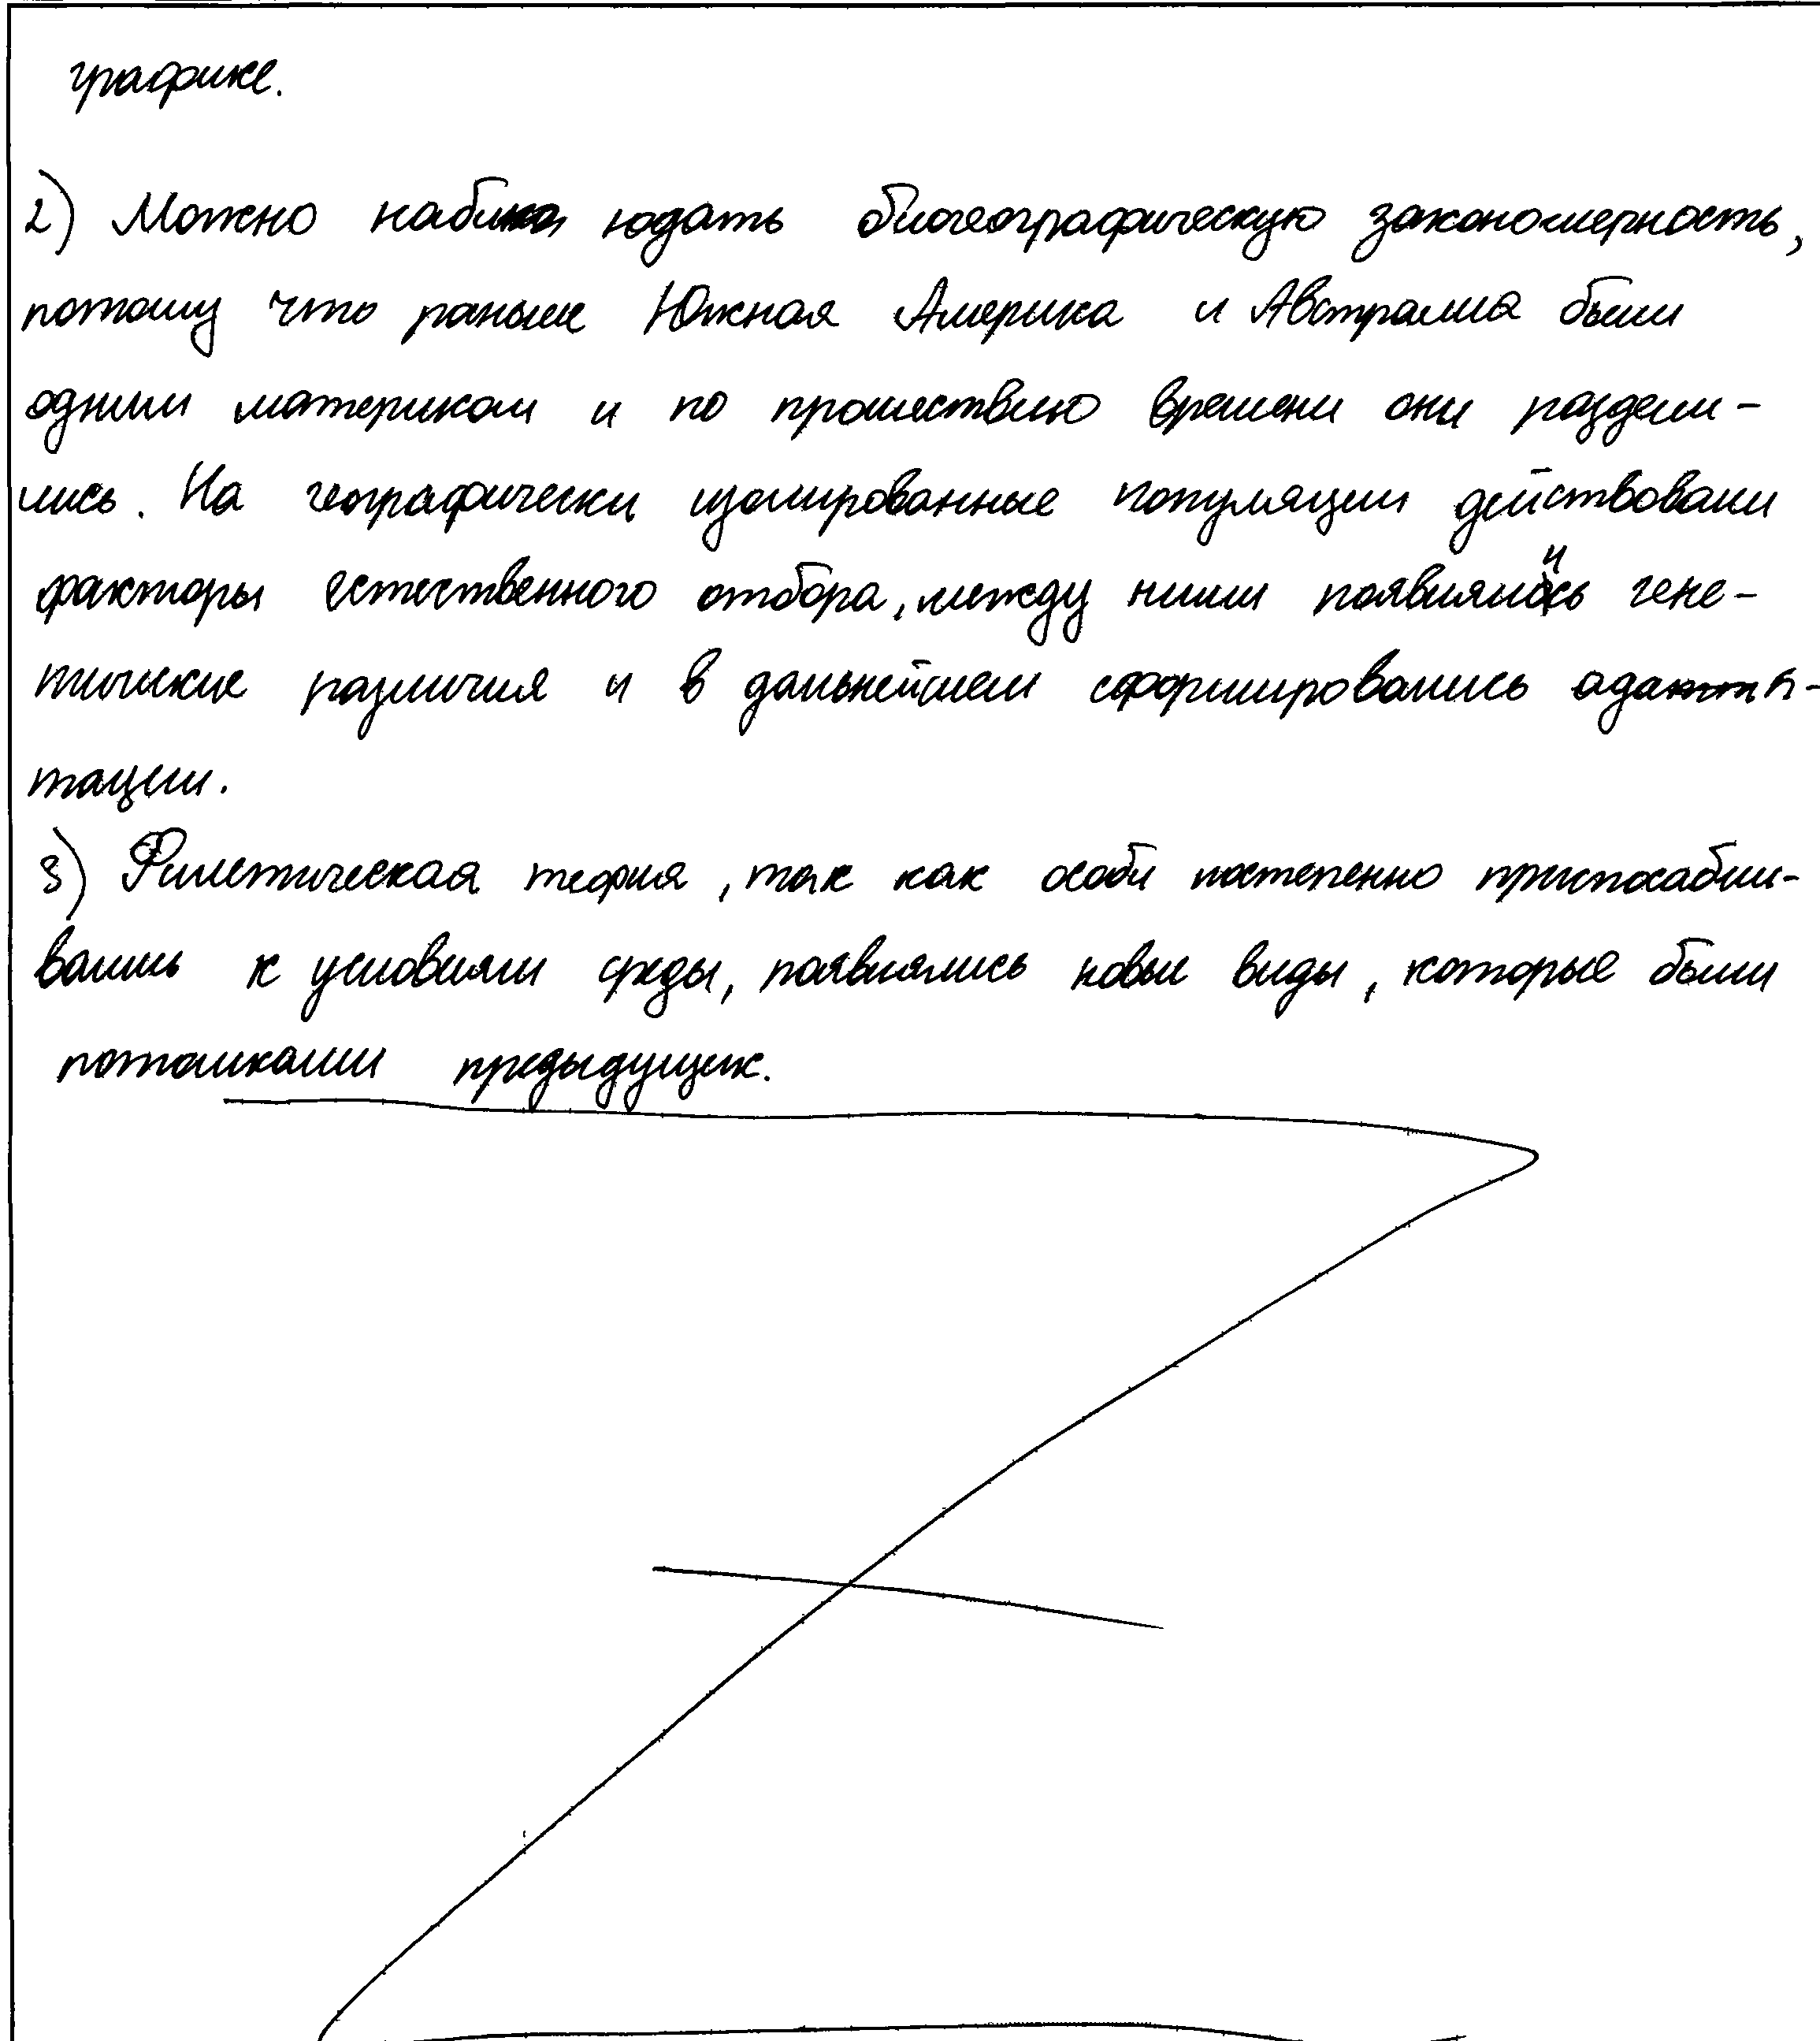 графике.
2) Можно наблюдать биогеографическую закономерность,
потому что раньше Южная Америка и Австралия были
одним материком и по прошествию времени они раздели-
лись. На географически изолированные популяции действовали
факторы естественного отбора, между ними появились гене-
тические различия и в дальнейшем сформировались адап-
тации.
3) Филетическая теория, так как особи постепенно приспосабли-
вались к условиям среды, появлялись новые виды, которые были
потомками предыдущих.